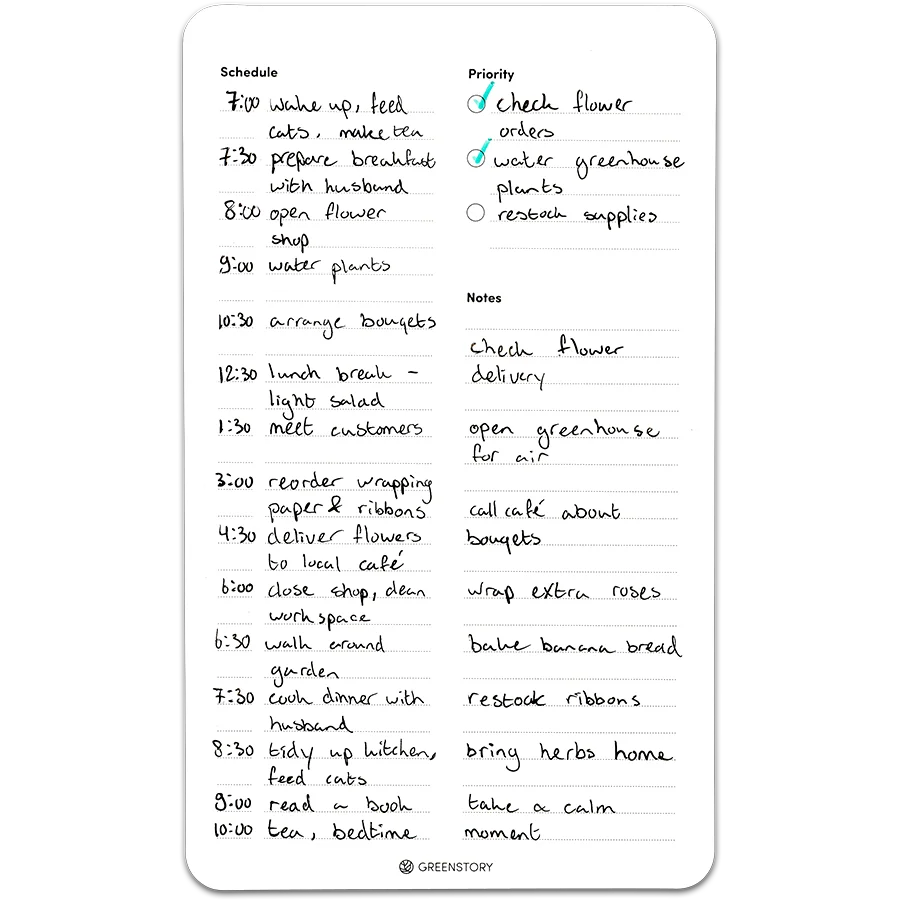 Schedule
7:00 wake up, feed
cats, make tea
7:30 prepare breakfast
with husband
8:00 open flower
shop
9:00 water plants
10:30 arrange bouqets
12:30 lunch break -
light salad
1:30 meet customers
3:00 reorder wrapping
paper & ribbons
4:30 deliver flowers
to local café
6:00 close shop, clean
workspace
6:30 walk around
garden
7:30 cook dinner with
husband
8:30 tidy up kitchen,
feed cats
9:00 read a book
10:00 tea, bedtime
Priority
check flower
orders
water greenhouse
plants
restock supplies
Notes
check flower
delivery
open greenhouse
for air
call café about
bouqets
wrap extra roses
bake banana bread
restock ribbons
bring herbs home
take a calm
moment
GREENSTORY